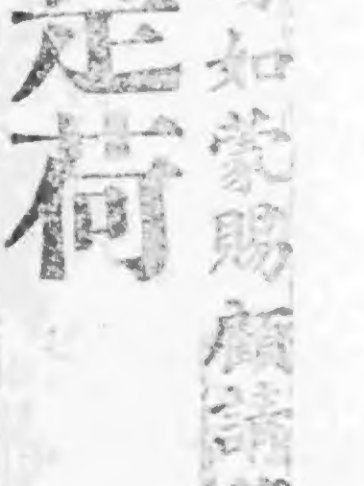 如蒙賜顧請
是荷